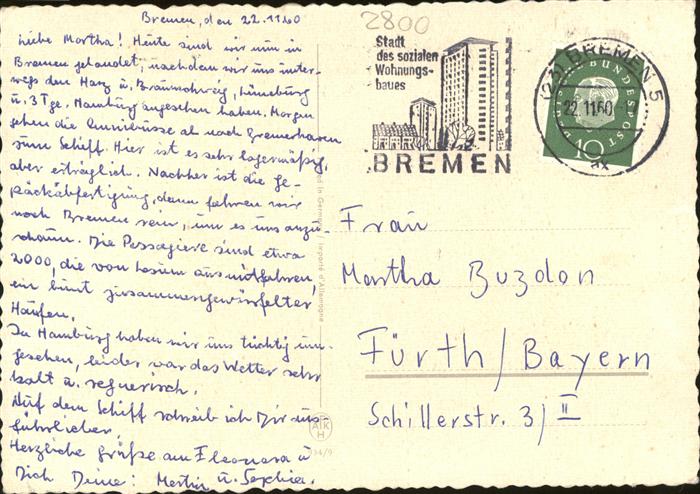 Bremen, den 22.11.60
Liebe Martha! Heute sind wir nun in
Bremen gelandet, nachdem wir uns unter-
wegs den Harz u. Braunschweig, Lüneburg
u. 3 Tge. Hamburg angesehen haben. Morgen
gehen die Omnibüsse ab nach Bremerhaven
zum Schiff. Hier ist es sehr lagermäßig,
aber erträglich. Nachher ist die Ge-
päckabfertigung, dann fahren wir
nach Bremen rein, um es uns anzu-
schaun. Die Passagiere sind etwa
2000, die von hier aus mitfahren,
ein bunt zusammengewürfelter
Haufen.
In Hamburg haben wir uns tüchtig um-
gesehen, leider war das Wetter sehr
kalt u. regnerisch.
Auf dem Schiff schreib ich Dir aus-
führlicher.
Herzliche Grüße an Eleonora u
Dich Deine: Martin u. Sophie.
2800
Stadt
des sozialen
Wohnungs-
baues
BREMEN
(23) BREMEN 5
22.11.60
DEUTSCHE BUNDESPOST
10
Frau
Martha Buzdon
Fürth/Bayern
Schillerstr. 3/II
in Germany / Importé d'Allemagne
AKH